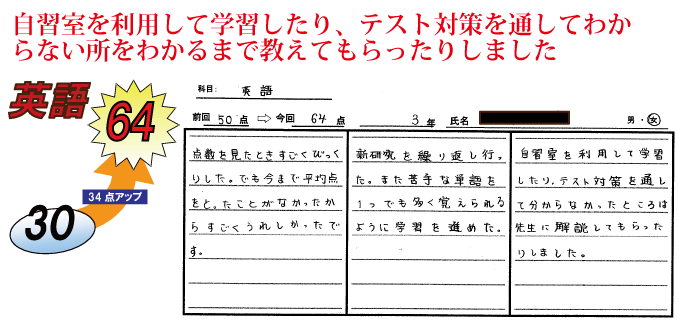 自習室を利用して学習したり、テスト対策を通してわか
らない所をわかるまで教えてもらったりしました
英語
64
34点アップ
30
科目: 英語
前回 50点 ⇨ 今回 64点 3年 氏名 男・女
点数を見たときすごくびっく
りした。でも今まで平均点
をとったことがなかったか
らすごくうれしかったで
す。
新研究を繰り返し行っ
た。また苦手な単語を
1つでも多く覚えられる
ように学習を進めた。
自習室を利用して学習
したり、テスト対策を通し
て分からなかったところは
先生に解説してもらった
りしました。